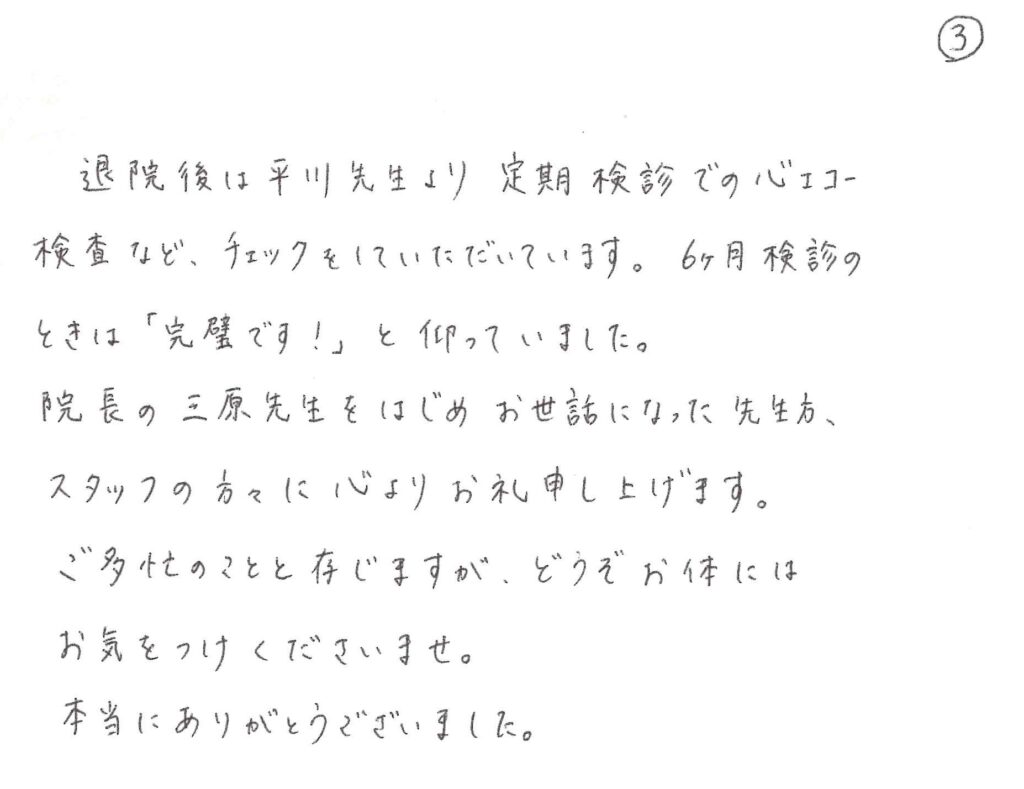 ③
退院後は平川先生より定期検診での心エコー
検査など、チェックをしていただいています。6ヶ月検診の
ときは「完璧です!」と仰っていました。
院長の三原先生をはじめお世話になった先生方、
スタッフの方々に心よりお礼申し上げます。
ご多忙のことと存じますが、どうぞお体には
お気をつけくださいませ。
本当にありがとうございました。